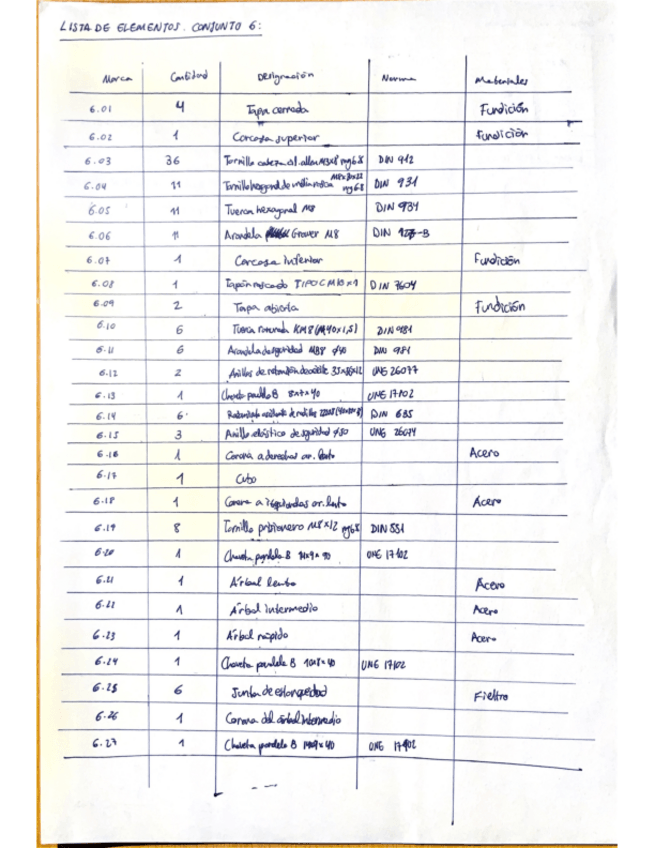 LISTA DE ELEMENTOS. CONJUNTO 6:
Marca Cantidad Designación Norma Materiales
6.01 4 Tapa cerrada Fundición
6.02 1 Carcasa superior Fundición
6.03 36 Tornillo cabeza cil. allen M3x8 mg 6.8 DIN 912
6.04 11 Tornillo hexagonal de media rosca mg 6.8 DIN 931
6.05 11 Tuerca hexagonal M8 DIN 934
6.06 11 Arandela Grower M8 DIN 127-B
6.07 1 Carcasa inferior Fundición
6.08 1 Tapón roscado TIPO C M10x1 DIN 7604
6.09 2 Tapa abierta Fundición
6.10 6 Tuerca ranurada KM8 (M40x1,5) DIN 981
6.11 6 Arandela de seguridad MB8 φ40 DIN 981
6.12 2 Anillos de retención de aceite UNE 26077
6.13 1 Chaveta paralela B 8x7x40 UNE 17102
6.14 6 de rodillos DIN 635
6.15 3 Anillo elástico de seguridad φ80 UNE
6.16 1 Corona a derechas ar. lento Acero
6.17 1 Cubo
6.18 1 Corona a izquierdas ar. lento Acero
6.19 8 Tornillo prisionero M8x12 mg 6.8 DIN 551
6.20 1 Chaveta paralela B UNE 17102
6.21 1 Árbol lento Acero
6.22 1 Árbol intermedio Acero
6.23 1 Árbol rápido Acero
6.24 1 Chaveta paralela B 10x8x40 UNE 17102
6.25 6 Junta de estanqueidad Fieltro
6.26 1 Corona del árbol intermedio
6.27 1 Chaveta paralela B 14x9x40 UNE 17102